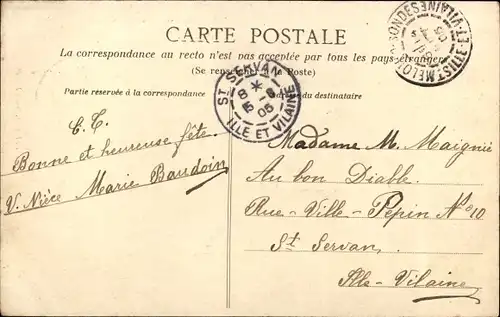 CARTE POSTALE
La correspondance au recto n'est pas acceptée par tous les pays étrangers
(Se renseigner à la Poste)
Partie réservée à la correspondance
du destinataire
ST SERVAN
8 *
15 - 8
05
ILLE ET VILAINE
ET-VILAINE
C. C.
Bonne et heureuse fête.
V. Nièce Marie Baudoin
Madame M. Maignié
Au bon Diable.
Rue - Ville - Pépin No 10
St Servan
Ille - Vilaine